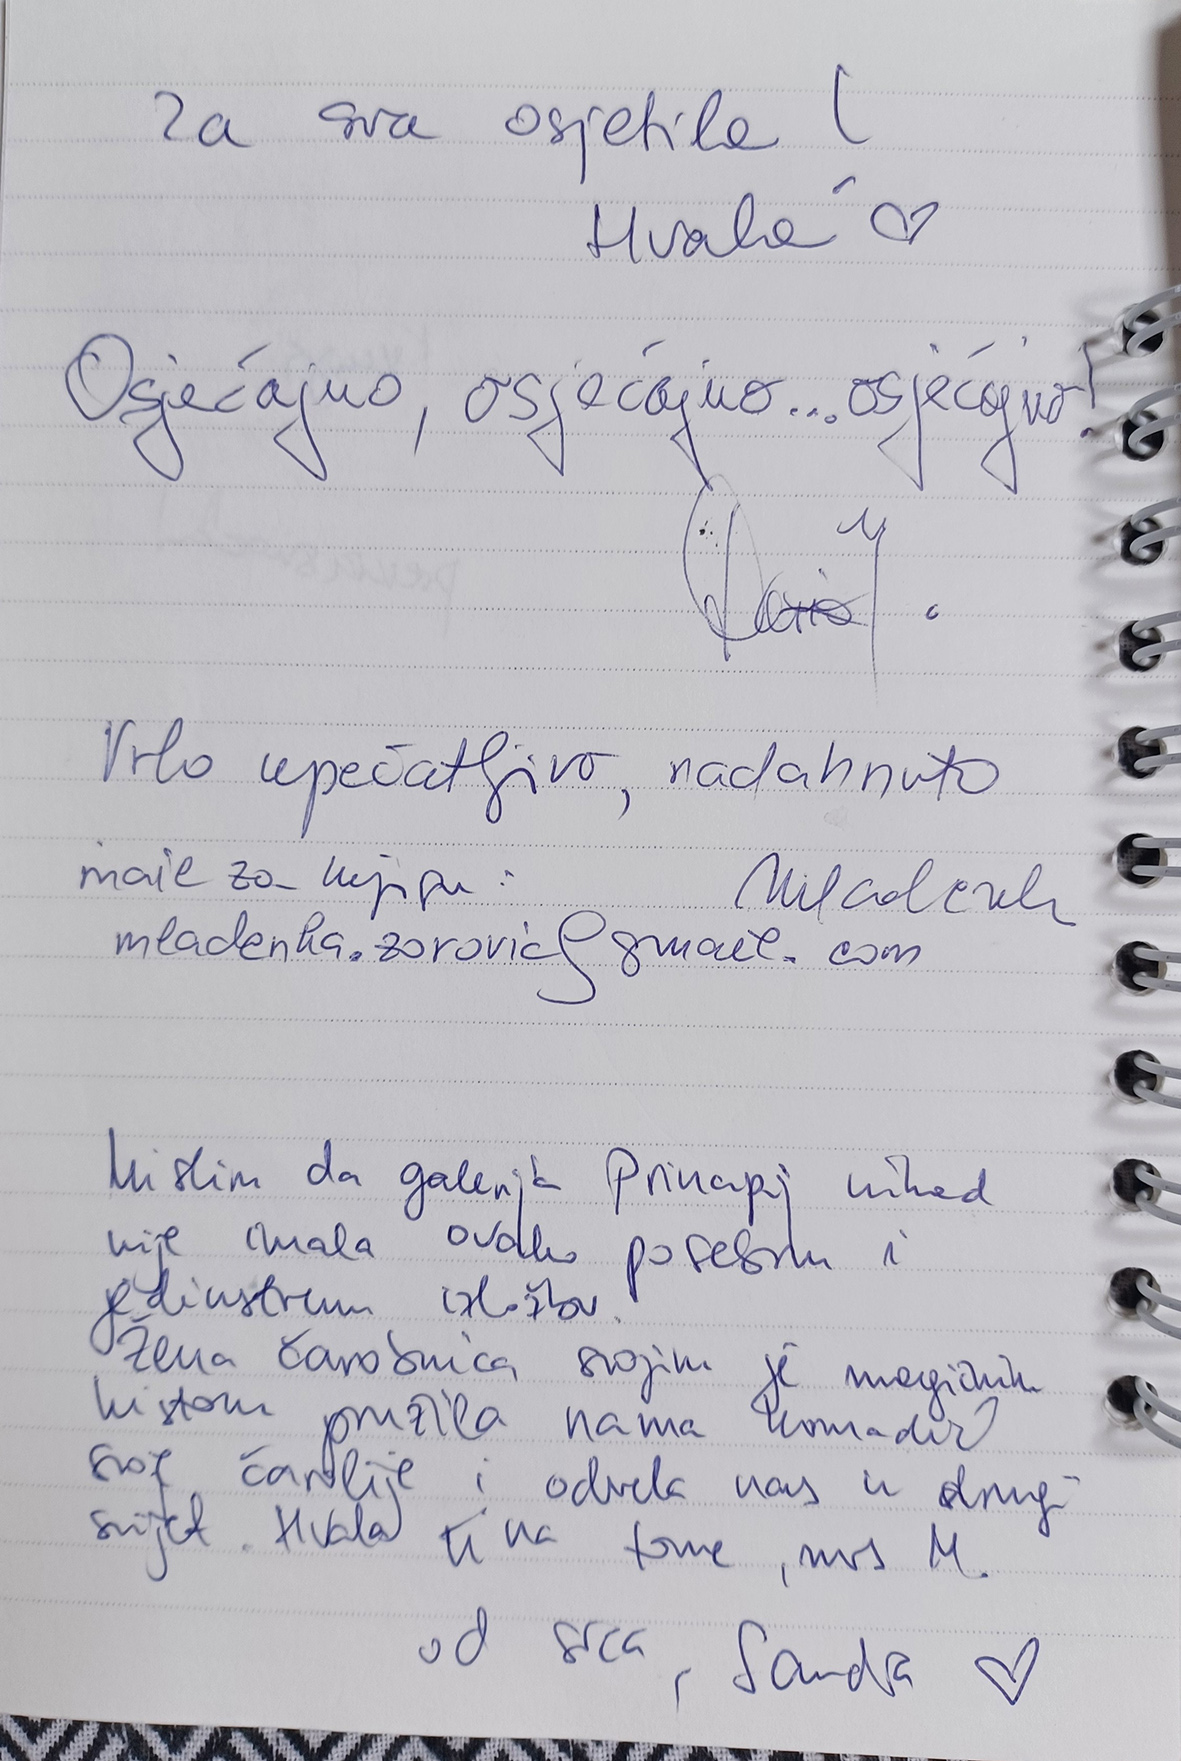 Za sva osjetila!
Hvala ♡
Osjećajno, osjećajno...osjećajno!
Vrlo upečatljivo, nadahnuto
mail za knjigu: Mladenka
mladenka.zorovic@gmail.com
Mislim da galerija Principij nikad
nije imala ovako posebnu i
jedinstvenu izložbu.
Žena čarobnica svojim je magičnim
kistom pružila nama komadić
svoje čarolije i odvela nas u drugi
svijet. Hvala ti na tome, mrs M.
od srca, Sandra ♡